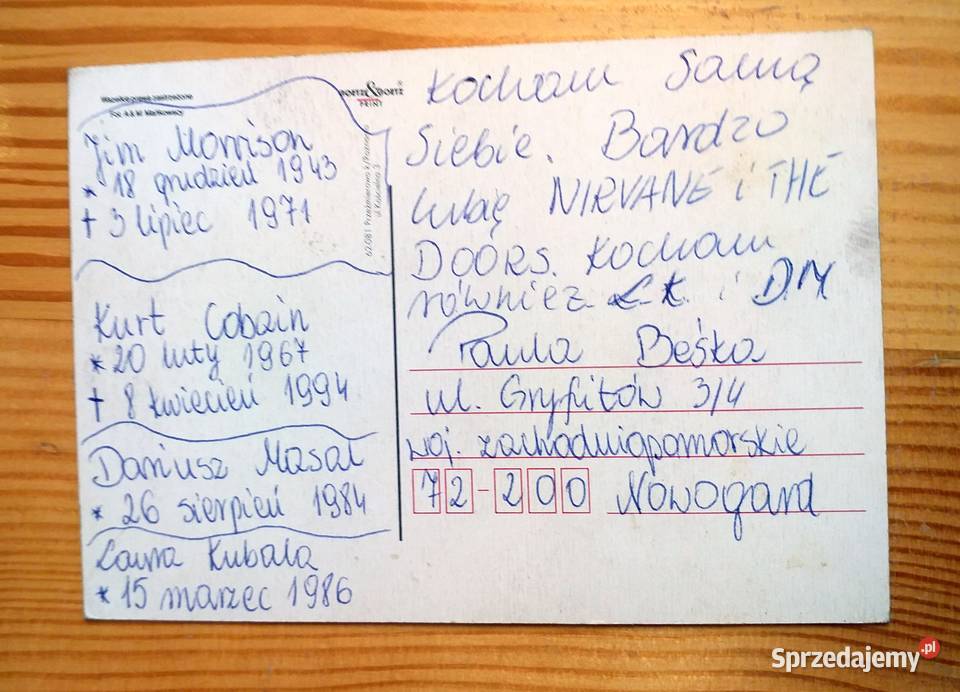 Wszelkie prawa zastrzeżone
Fot. A & M Maćkowiccy
PRINT
Jim Morrison
* 18 grudzień 1943
+ 3 lipiec 1971
Kurt Cobain
* 20 luty 1967
+ 8 kwiecień 1994
Dariusz Masal
* 26 sierpień 1984
Laura Kubala
* 15 marzec 1986
Kocham Samą
Siebie. Bardzo
lubię NIRVANĘ i THE
DOORS. Kocham
również Ł K i DM
Paula Beśka
ul. Gryfitów 3/4
woj. zachodniopomorskie
72-200 Nowogard
Sprzedajemy.pl